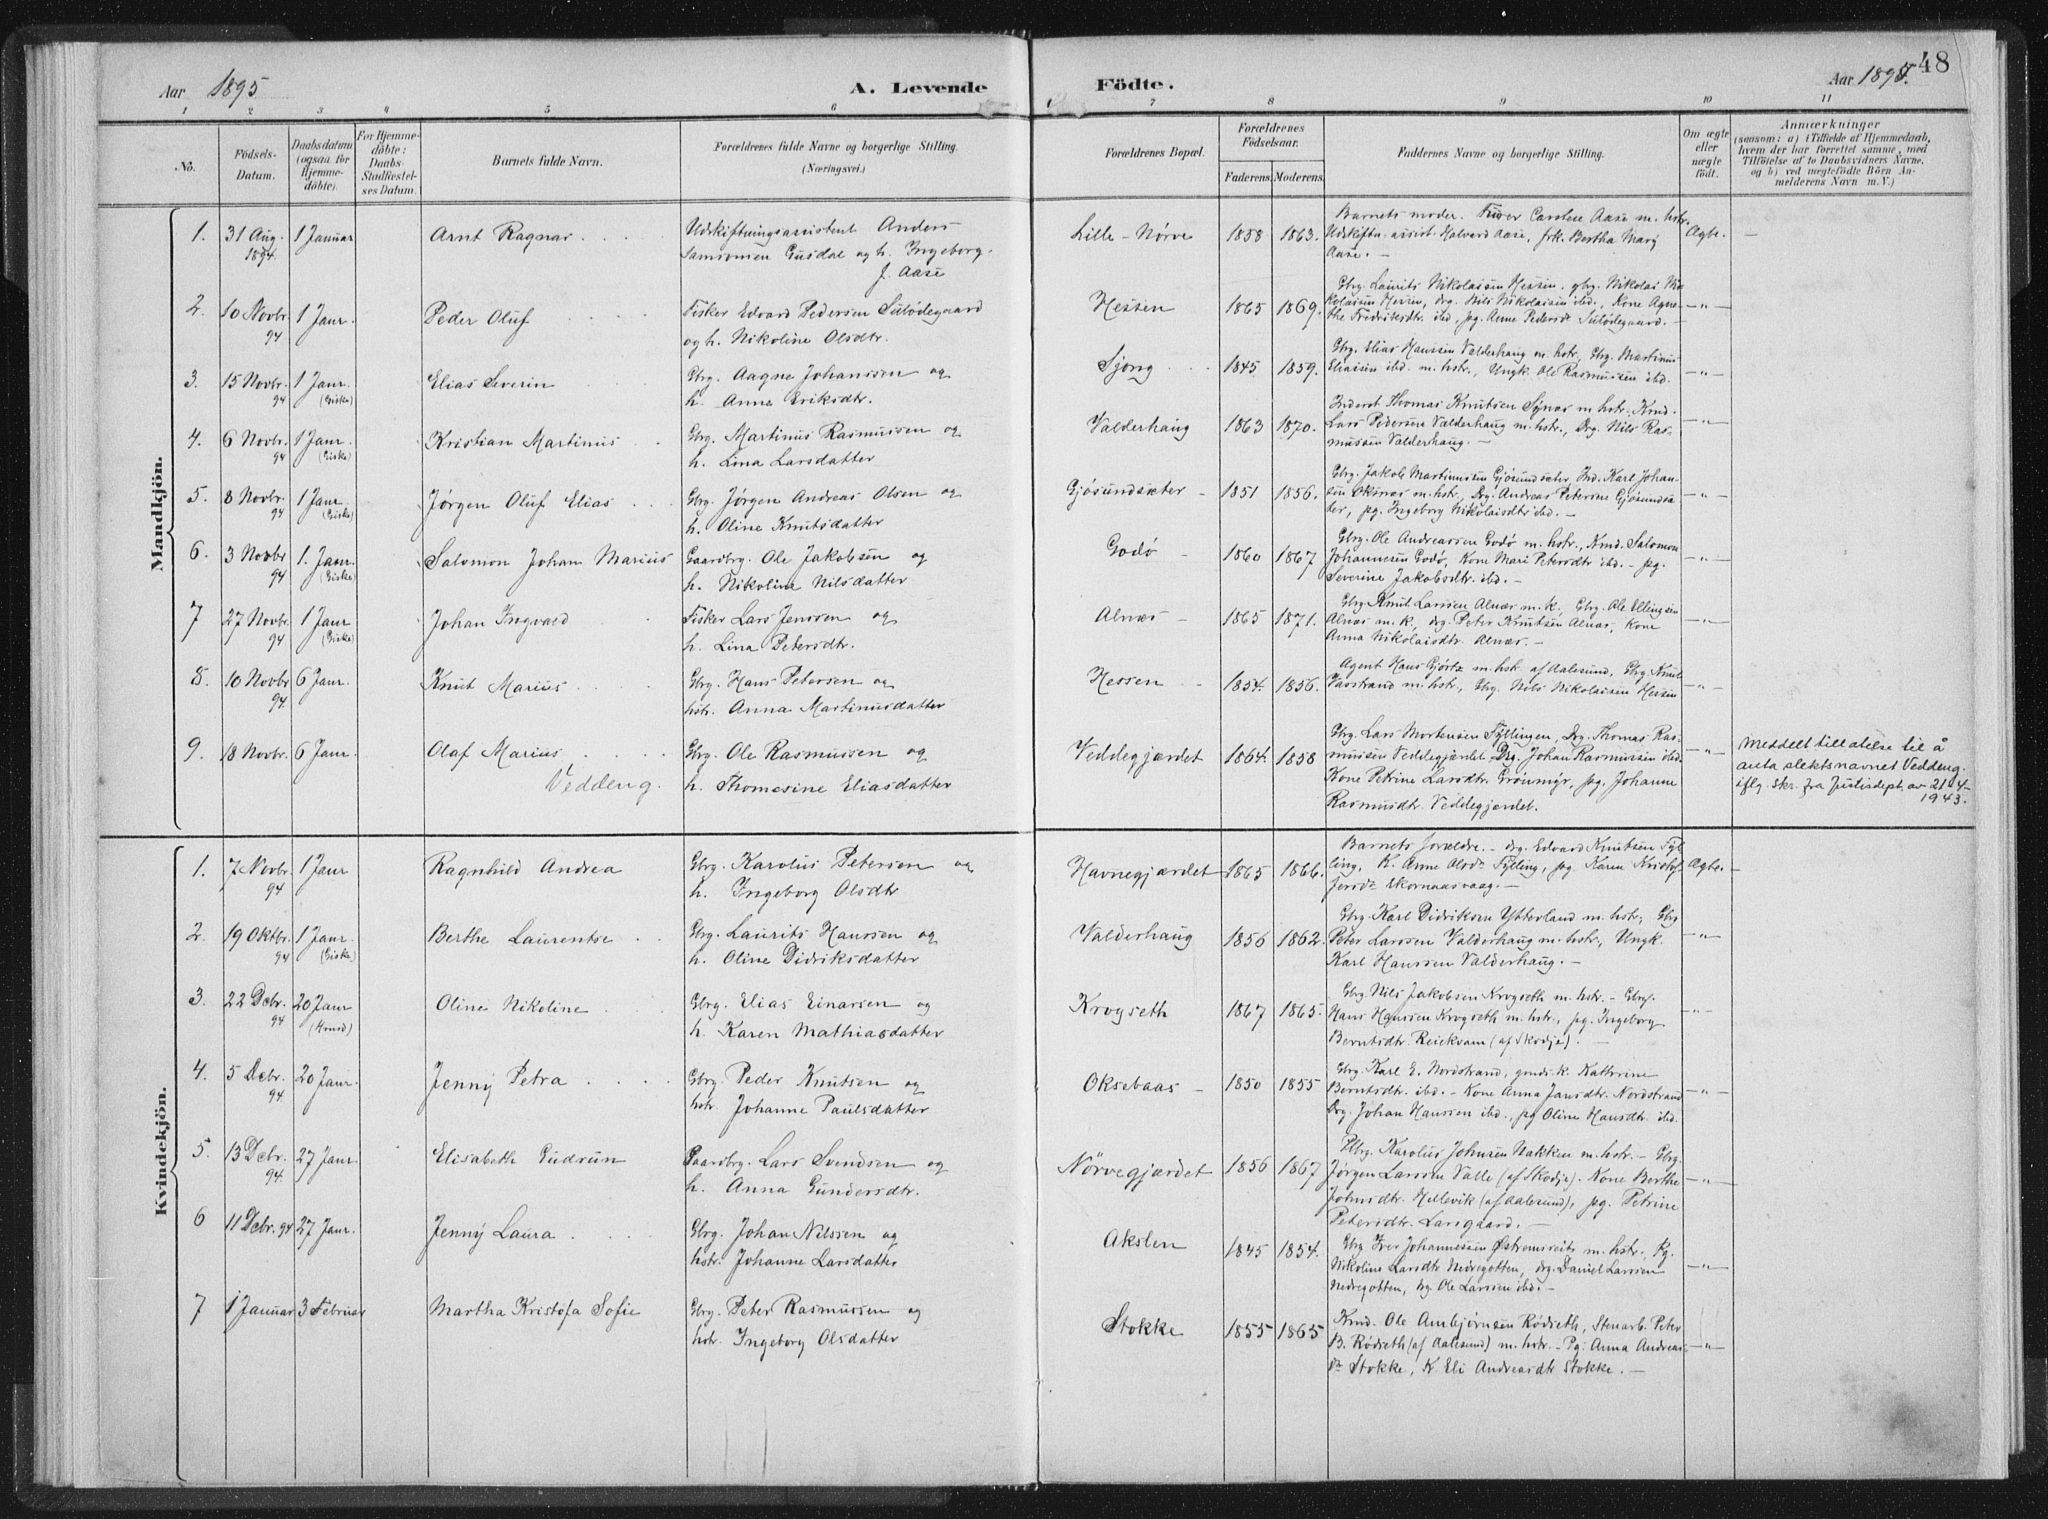 48
Aar 1895
A. Levende
Födte.
Aar 1895.
1 2 3 4 5 6 7 8 9 10 11
No.
Födsels-
Datum.
Daabsdatum
(ogsaa for
Hjemme-
döbte).
For Hjemme-
döbte:
Daabs-
Stadfæstel-
ses Datum.
Barnets fulde Navn.
Forældrenes fulde Navne og borgerlige Stilling.
(Næringsvei.)
Forældrenes Bopæl.
Forældrenes
Födselsaar.
Faderens. Moderens.
Faddernes Navne og borgerlige Stilling.
Om ægte
eller
uægte
födt.
Anmærkninger
(saasom: a) i Tilfælde af Hjemmedaab,
hvem der har forrettet samme, med
Tilföielse af to Daabsvidners Navne,
og b) ved uægtefödte Börn An-
melderens Navn m. V.)
Mandkjön.
1. 31 Aug. 1894. 1 Januar Arnt Ragnar
Udskiftningsassistent Anders
Samsonsen Gusdal og h. Ingeborg
J. Aase
Lille-Nørve 1858 1863.
Barnets moder. Fruer Caroline Aase m. hstr.
Udskiftn. assist. Halvard Aase, frk. Bertha Mary
Aase. —
Ægte. —
2. 10 Novbr. 94 1 Janr. Peder Oluf
Fisker Edvard Pedersen Sulødegaard
og h. Nikoline Olsdtr.
Hessen 1865 1869.
Gbrg. Laurits Nikolaisen Hessen, gbrg. Nikolai Ni-
kolaisen Hessen, drg. Nils Nikolaisen ibd., Kone Agne-
the Fredriksdtr. ibd., pg. Anne Pedersdt. Sulødegaard. —
— " —
3. 15 Novbr. 94 1 Janr. (Giske) Elias Severin
Gbrg. Aagne Johanssen og
h. Anne Eriksdtr.
Sjong 1845 1859.
Gbrg. Elias Hanssen Valderhaug m. hstr., Gbrg. Martinus
Eliassen ibd. m. hstr., Ungk. Ole Rasmussen ibd.
— " —
4. 6 Novbr. 94 1 Janr. (Giske) Kristian Martinus
Gbrg. Martinus Rasmussen og
h. Lina Larsdatter
Valderhaug 1863 1870.
Inderst Thomas Knutsen Synes m. hstr., Kmd.
Lars Pedersen Valderhaug m. hstr., Drg. Nils Ras-
mussen Valderhaug. —
— " —
5. 8 Novbr. 94 1 Janr. (Giske) Jørgen Oluf Elias
Gbrg. Jørgen Andreas Olsen og
h. Oline Knutsdatter
Gjøsundsæter 1851 1856.
Gbrg. Jakob Martinussen Gjøsundsæter, Ind. Karl Johan-
sen Oksnes m. hstr., Drg. Andreas Petersen Gjøsundsæ-
ter, pg. Ingeborg Nikolaisdtr ibd. —
— " —
6. 3 Novbr 94 1. Janr. (Giske) Salomon Johan Marius
Gaardbrg. Ole Jakobsen og
h. Nikoline Nilsdatter
Godø 1860 1867
Gbrg. Ole Andreassen Godø m. hstr., Kmd. Salomon
Johannesen Godø, Kone Mari Petersdtr ibd. — pg.
Severine Jakobsdtr. ibd. —
— " —
7 27 Novbr. 94 1 Janr (Giske) Johan Ingvald
Fisker Lars Jenssen og
h. Lina Petersdtr.
Alnæs 1865 1871.
Gbrg. Knut Larssen Alnæs m. k., Gbrg. Ole Ellingsen
Alnæs m. k., drg. Peter Knutsen Alnæs, Kone
Anna Nikolaisdtr. Alnæs. —
— " —
8. 10 Novbr 94. 6 Janr. Knut Marius
Gbrg. Hans Petersen og
hstr. Anna Martinusdatter
Hessen 1854. 1856.
Agent Hans Gjørtz m. hstr. af Aalesund, Gbrg. Knut
Vasstrand m. hstr., Gbrg. Nils Nikolaisen Hessen
— " —
9. 18 Novbr. 94 6 Janr. Olaf Marius
Veddeng.
Gbrg. Ole Rasmussen og
h. Thomesine Eliasdatter
Veddegjærdet 1864. 1858
Gbrg. Lars Mortensen Fyllingen, Drg. Thomas Ras-
mussen Veddegjærdet, Drg. Johan Rasmussen ibd.
Kone Petrine Larsdtr. Grönmyr, pg. Johanne
Rasmusdtr. Veddegjerdet.
— " —
Meddelt tillatelse til å
anta slektsnavnet Veddeng
iflg. skr. fra Justisdept. av 21-4-
1943.
Kvindekjön.
1. 7 Novbr. 94 1 Janr Ragnhild Andrea
Gbrg. Karolus Petersen og
h. Ingeborg Olsdtr
Havnegjærdet 1865 1866.
Barnets forældre. — drg. Edvard Knutsen Fyl-
ling, K. Anne Olsdr Fylling, pg Karen Kristof-
fersdr Skornaasvaag. —
Ægte. —
2. 19 Oktbr. 94 1 Janr. (Giske) Berthe Laurentse
Gbrg. Laurits Hanssen og
h. Oline Didriksdatter
Valderhaug 1856 1862.
Gbrg. Karl Didriksen Ytterland m. hstr., Gbrg
Peter Larssen Valderhaug m. hstr., Ungk.
Karl Hanssen Valderhaug. —
— " —
3. 22 Dcbr. 94 20 Janr Oline Nikoline
Gbrg. Elias Einarsen og
h. Karen Mathiasdatter
Krogseth 1867 1865.
Gbrg Nils Jakobsen Krogseth m. hstr. — Gbrg.
Hans Hanssen Krogseth m. hstr., pg. Ingeborg
Berntsdtr. Reiekvam (af Skodje). —
— " —
4. 5 Dcbr. 94. 20 Janr. Jenny Petra
Gbrg. Peder Knutsen og
hstr. Johanne Paulsdatter
Oksebaas — 1850 1855
Gbrg. Karl E. Nordstrand, gmds. k. Kathrine
Berntsdtr. ibd. — Kone Anna Jansdtr. Nordstrand
Drg. Johan Hanssen ibd., pg Oline Hansdtr. ibd.
— " —
5. 13 Dcbr. 94. 27 Janr. Elisabeth Gudrun
Gaardbrg. Lars Svendsen og
h. Anna Gundersdtr.
Nörvegjærdet 1856 1867
Gbrg. Karolus Johnsen Nakken m. hstr. — Gbrg.
Jørgen Larssen Valle (af Skodje). Kone Berthe
Johnsdtr. Hellevik (af Aalesund), pg. Petrine
Petersdtr. Larsgaard. —
— " —
6 11 Dcbr. 94 27 Janr. Jenny Laura
Gbrg. Johan Nilssen og
hstr. Johanne Larsdatter
Akslen 1845 1854.
Gbrg Iver Johannessen Østremsveits m. hstr., Pg.
Nikoline Larsdtr Nedregotten, drg. Daniel Larssen
Nedregotten, drg Ole Larssen ibd. —
— " —
7 1 Januar 3 Februar Martha Kristofa Sofie
Gbrg. Peter Rasmussen og
hstr. Ingeborg Olsdatter
Stokke 1855 1865
Kmd. Ole Arnbjørnsen Rødseth, Stenarb. Peter
B. Rødseth (af Aalesund) m. hstr. — Pg. Anna Andreas-
dr Stokke, K. Eli Andreasdtr Stokke. —
— " —